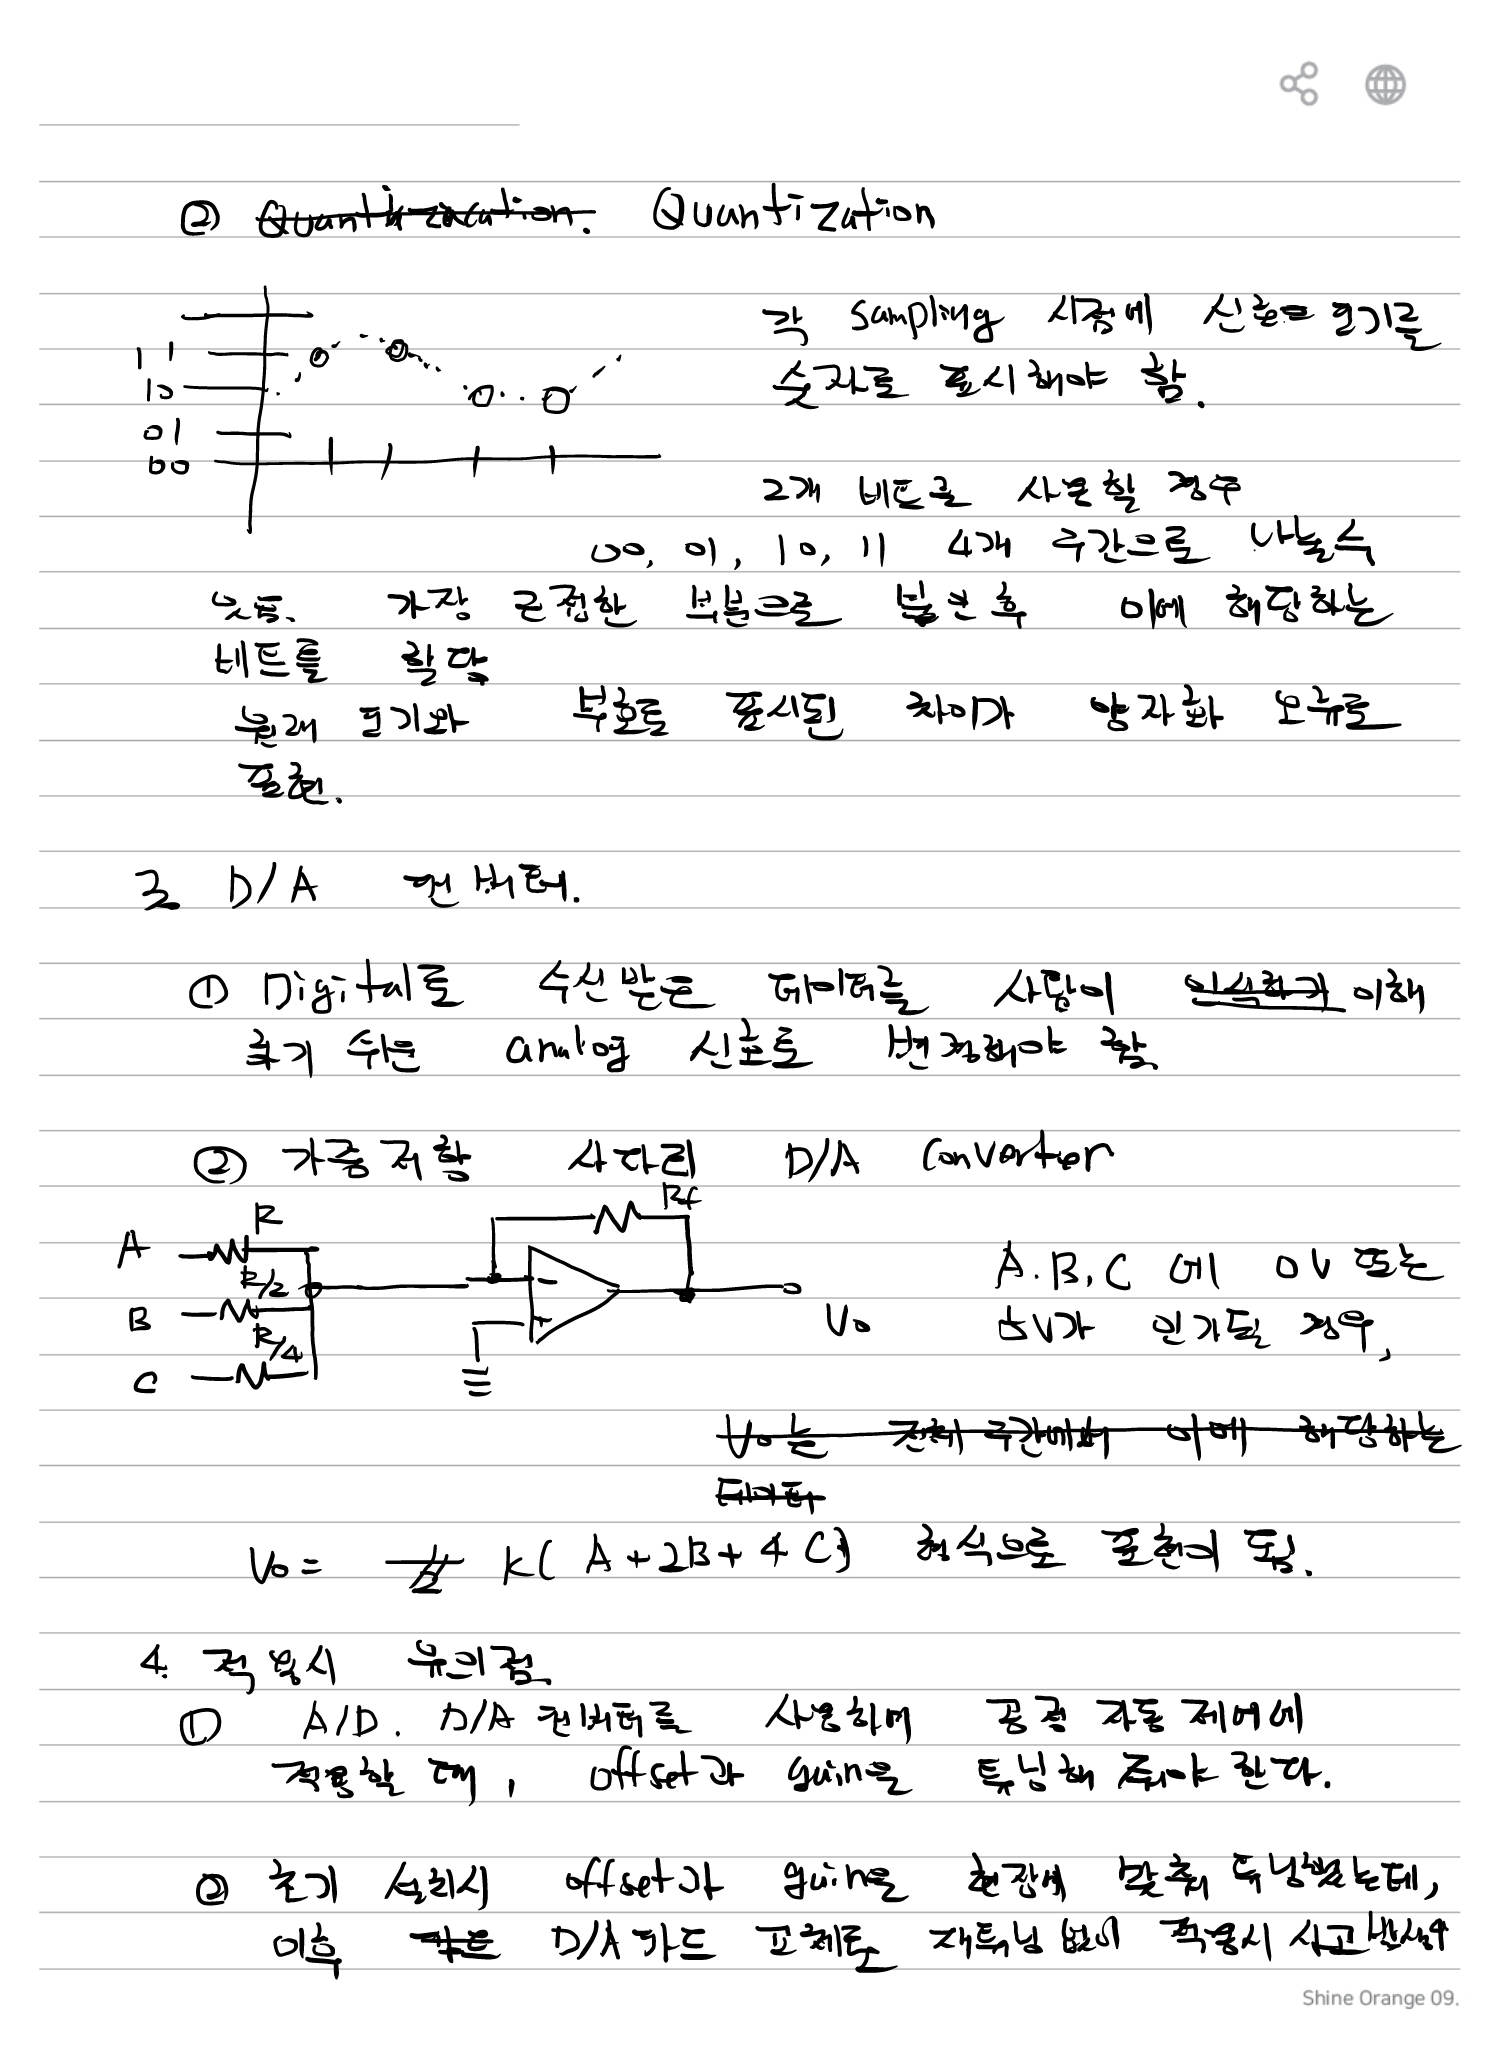 ② Quantization
각 sampling 시점에 신호 크기를
숫자로 표시해야 함.
11
10
01
00
2개 비트를 사용할 경우
00, 01, 10, 11 4개 구간으로 나눌수
있음. 가장 근접한 부분으로 붙인후 이에 해당하는
비트를 할당
원래 크기와 부호로 표시된 차이가 양자화 오류로
표현.
3 D/A 컨버터.
① Digital로 수신받은 데이터를 사람이 이해
하기 쉬운 analog 신호로 변경해야 함
② 가중저항 사다리 D/A Converter
R
Rf
A
R/2
B
R/4
C
Vo
A.B.C 에 0V 또는
5V가 인가될 경우,
Vo는 전체 구간에서 이에 해당하는
데이터
Vo = K( A+2B+4C) 형식으로 표현이 됨.
4. 적용시 유의점
① A/D. D/A 컨버터를 사용하여 공정 자동제어에
적용할 때, offset과 gain을 튜닝해 줘야 한다.
② 초기 설치시 offset과 gain을 현장에 맞춰 튜닝했는데,
이후 D/A카드 교체로 재튜닝 없이 적용시 사고발생우
Shine Orange 09.